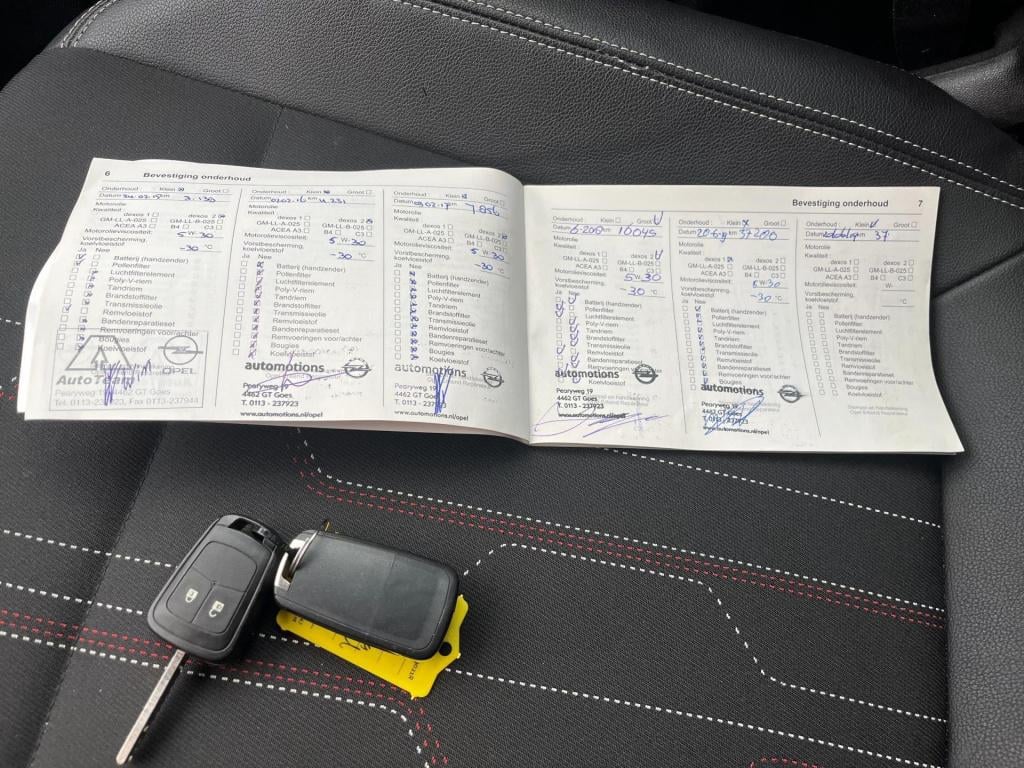 6 Bevestiging onderhoud
Onderhoud: Klein Groot
Datum km
Motorolie
Kwaliteit: dexos 1 dexos 2
GM-LL-A-025 GM-LL-B-025
ACEA A3 C3
Motorolieviscositeit: 5 W-30
Vorstbescherming, koelvloeistof -30 °C
Ja Nee
Batterij (handzender)
Pollenfilter
Luchtfilterelement
Poly-V-riem
Tandriem
Brandstoffilter
Transmissieolie
Remvloeistof
Bandenreparatieset
Remvoeringen voor/achter
Bougies
Koelvloeistof
AutoTeam OPEL
Pearyweg 4462 GT Goes
Tel. 0113-237923, Fax 0113-237944
Onderhoud: Klein Groot
Datum km
Motorolie
Kwaliteit: dexos 1 dexos 2
GM-LL-A-025 GM-LL-B-025
ACEA A3 C3
Motorolieviscositeit: 5 W-30
Vorstbescherming, koelvloeistof -30 °C
Ja Nee
Batterij (handzender)
Pollenfilter
Luchtfilterelement
Poly-V-riem
Tandriem
Brandstoffilter
Transmissieolie
Remvloeistof
Bandenreparatieset
Remvoeringen voor/achter
Bougies
Koelvloeistof
automotions
Pearyweg 19
4462 GT Goes
T. 0113 - 237923
www.automotions.nl/opel
Onderhoud: Klein Groot
Datum km
Motorolie
Kwaliteit: dexos 1 dexos 2
GM-LL-A-025 GM-LL-B-025
ACEA A3 C3
Motorolieviscositeit: 5 W-30
Vorstbescherming, koelvloeistof -30 °C
Ja Nee
Batterij (handzender)
Pollenfilter
Luchtfilterelement
Poly-V-riem
Tandriem
Brandstoffilter
Transmissieolie
Remvloeistof
Bandenreparatieset
Remvoeringen voor/achter
Bougies
Koelvloeistof
automotions
Pearyweg 19
4462 GT Goes
T. 0113 - 237923
www.automotions.nl/opel
Bevestiging onderhoud 7
Onderhoud: Klein Groot
Datum km 16045
Motorolie
Kwaliteit: dexos 1 dexos 2
GM-LL-A-025 GM-LL-B-025
ACEA A3 B4 C3
Motorolieviscositeit: 5 W-30
Vorstbescherming, koelvloeistof -30 °C
Ja Nee
Batterij (handzender)
Pollenfilter
Luchtfilterelement
Poly-V-riem
Tandriem
Brandstoffilter
Transmissieolie
Remvloeistof
Bandenreparatieset
Koelvloeistof
automotions
Pearyweg 19
4462 GT Goes
T. 0113 - 237923
www.automotions.nl/opel
Onderhoud: Klein Groot
Datum km 37200
Motorolie
Kwaliteit: dexos 1 dexos 2
GM-LL-A-025 GM-LL-B-025
ACEA A3 B4 C3
Motorolieviscositeit: 5 W-30
Vorstbescherming, koelvloeistof -30 °C
Ja Nee
Batterij (handzender)
Pollenfilter
Luchtfilterelement
Poly-V-riem
Tandriem
Brandstoffilter
Transmissieolie
Remvloeistof
Bandenreparatieset
Remvoeringen voor/achter
Bougies
automotions
Pearyweg 19
4462 GT Goes
www.automotions.nl/opel
Onderhoud: Klein Groot
Datum 37
Motorolie
Kwaliteit: dexos 1 dexos 2
GM-LL-A-025 GM-LL-B-025
ACEA A3 B4 C3
Motorolieviscositeit: W-
Vorstbescherming, koelvloeistof °C
Ja Nee
Batterij (handzender)
Pollenfilter
Luchtfilterelement
Poly-V-riem
Tandriem
Brandstoffilter
Transmissieolie
Remvloeistof
Bandenreparatieset
Remvoeringen voor/achter
Bougies
Koelvloeistof
Stempel en handtekening
Opel Erkend Reparateur